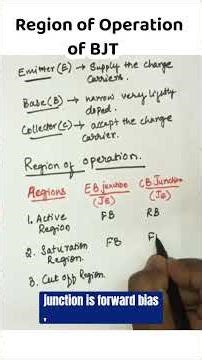 Region of Operation
of BJT
Emitter (E) → Supply the charge
carriers.
Base (B) → narrow very lightly
doped.
Collector (C) → accept the charge
carrier.
Region of operation.
Regions EB junction CB Junction
(JE)
1. Active FB RB
Region
2. Saturation FB F
Region.
3. Cut off Region
junction is forward bias
,